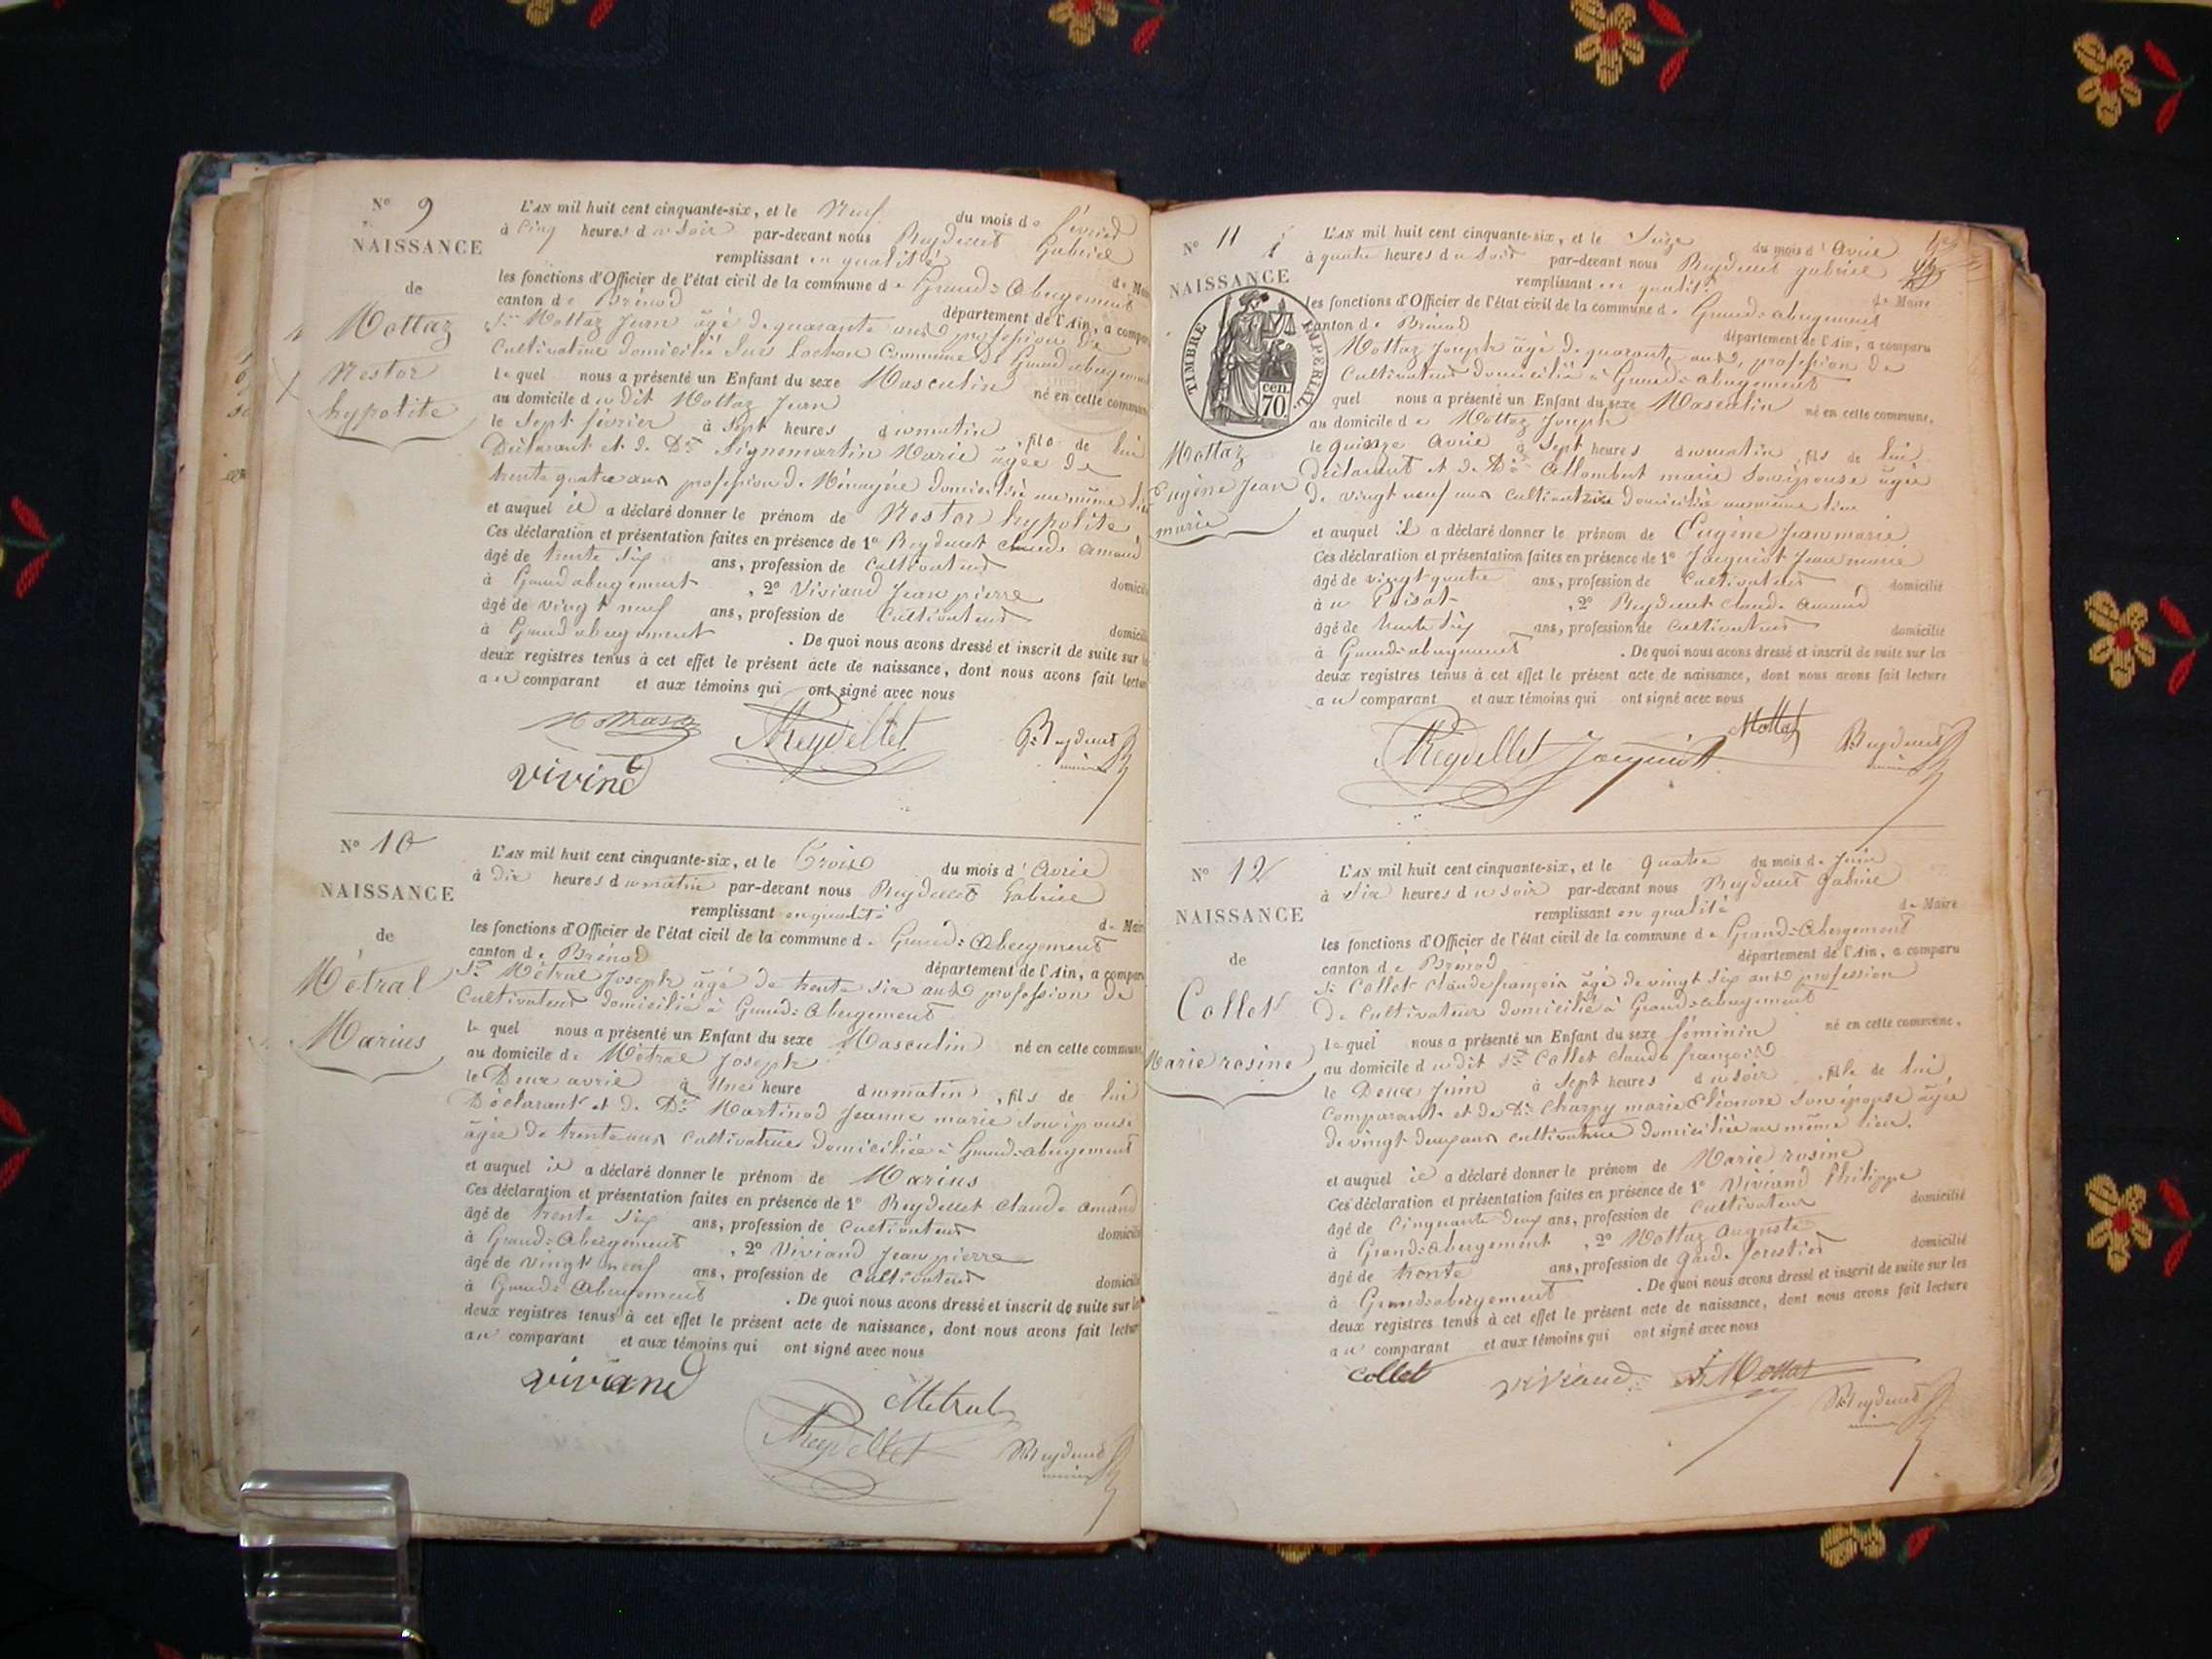 N° 9
NAISSANCE
de
Mottaz
Nestor
hypolite
L'AN mil huit cent cinquante-six, et le Neuf du mois de février
à Cinq heures du Soir par-devant nous Reydellet Gabriel
remplissant en qualité de Maire
les fonctions d'Officier de l'état civil de la commune de Grand=abergement
canton de Brénod département de l'Ain, a comparu
Sr Mottaz Jean âgé de quarante ans profession de
Cultivateur domicilié Sur Commune de Grand abergement
lequel nous a présenté un Enfant du sexe Masculin né en cette commune
au domicile du dit Mottaz Jean
le Sept février à Sept heures du matin, fils de lui
Déclarant et de De Marie âgée de
trente quatre ans profession de Ménagère domiciliée au même lieu
et auquel il a déclaré donner le prénom de Nestor hypolite
Ces déclaration et présentation faites en présence de 1° Reydellet Claude amand
âgé de trente six ans, profession de Cultivateur domicilié
à Grand abergement, 2° Viviand Jean pierre
âgé de vingt neuf ans, profession de Cultivateur domicilié
à Grand abergement. De quoi nous avons dressé et inscrit de suite sur les
deux registres tenus à cet effet le présent acte de naissance, dont nous avons fait lecture
au comparant et aux témoins qui ont signé avec nous
Reydellet
N° 10
NAISSANCE
de
Métral
Marius
L'AN mil huit cent cinquante-six, et le Trois du mois d'Avril
à dix heures du matin par-devant nous Reydellet Gabriel
remplissant en qualité de Maire
les fonctions d'Officier de l'état civil de la commune de Grand=Abergement
canton de Brénod département de l'Ain, a comparu
Sr Métral Joseph âgé de trente six ans profession de
Cultivateur domicilié à Grand=Abergement
lequel nous a présenté un Enfant du sexe Masculin né en cette commune
au domicile de Métral Joseph
le Deux avril à Une heure du matin, fils de lui
Déclarant et de De Martinod Jeanne marie son épouse
âgée de trente ans Cultivatrice domiciliée à Grand=abergement
et auquel il a déclaré donner le prénom de Marius
Ces déclaration et présentation faites en présence de 1° Reydellet Claude amand
âgé de trente six ans, profession de Cultivateur domicilié
à Grand=Abergement, 2° Viviand Jean pierre
âgé de vingt neuf ans, profession de Cultivateur domicilié
à Grand=Abergement. De quoi nous avons dressé et inscrit de suite sur les
deux registres tenus à cet effet le présent acte de naissance, dont nous avons fait lecture
au comparant et aux témoins qui ont signé avec nous
Metral
Reydellet
N° 11
NAISSANCE
TIMBRE IMPERIAL
cen. 70.
Mottaz
Eugène Jean
marie
L'AN mil huit cent cinquante-six, et le Seize du mois d'Avril
à quatre heures du Soir par-devant nous Reydellet gabriel
remplissant en qualité de Maire
les fonctions d'Officier de l'état civil de la commune de Grand=abergement
canton de Brénod département de l'Ain, a comparu
Mottaz Joseph âgé de quarante ans, profession de
Cultivateur domicilié à Grand=abergement
quel nous a présenté un Enfant du sexe Masculin né en cette commune.
au domicile de Mottaz Joseph
le quinze Avril à Sept heures du matin, fils de lui
déclarant et de De Allombert marie Son épouse âgée
de vingt neuf ans Cultivatrice domiciliée au même lieu
et auquel il a déclaré donner le prénom de Eugène Jean marie
Ces déclaration et présentation faites en présence de 1° Jacquiot Jean marie
âgé de vingt quatre ans, profession de Cultivateur domicilié
2° Reydellet Claude Amand
âgé de trente six ans, profession de Cultivateur domicilié
à Grand=abergement. De quoi nous avons dressé et inscrit de suite sur les
deux registres tenus à cet effet le présent acte de naissance, dont nous avons fait lecture
au comparant et aux témoins qui ont signé avec nous
Reydellet Jacquiot Mottaz
N° 12
NAISSANCE
de
Collet
Marie rosine
L'AN mil huit cent cinquante-six, et le quatre du mois de Juin
à Six heures du soir par-devant nous Reydellet Gabriel
remplissant en qualité de Maire
les fonctions d'Officier de l'état civil de la commune de Grand=Abergement
canton de Brénod département de l'Ain, a comparu
Sr Collet Claude françois âgé de vingt six ans profession
de Cultivateur domicilié à Grand=abergement
lequel nous a présenté un Enfant du sexe féminin né en cette commune.
au domicile du dit Sr Collet Claude françois
le Deux Juin à Sept heures du soir, fille de lui
Comparant et de De Charpy marie Eléonore Son épouse âgée
de vingt deux ans cultivatrice domiciliée au même lieu.
et auquel il a déclaré donner le prénom de Marie rosine
Ces déclaration et présentation faites en présence de 1° Viviand Philippe
âgé de Cinquante deux ans, profession de Cultivateur domicilié
à Grand=Abergement, 2° Mottaz Auguste
âgé de trente ans, profession de Garde forestier domicilié
à Grand=abergement. De quoi nous avons dressé et inscrit de suite sur les
deux registres tenus à cet effet le présent acte de naissance, dont nous avons fait lecture
au comparant et aux témoins qui ont signé avec nous
Collet Viviand Mottaz